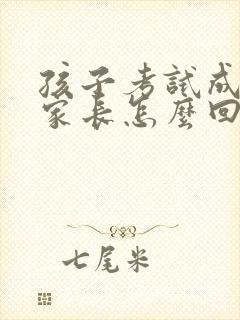 孩子考試成
家長怎麼回
七尾米